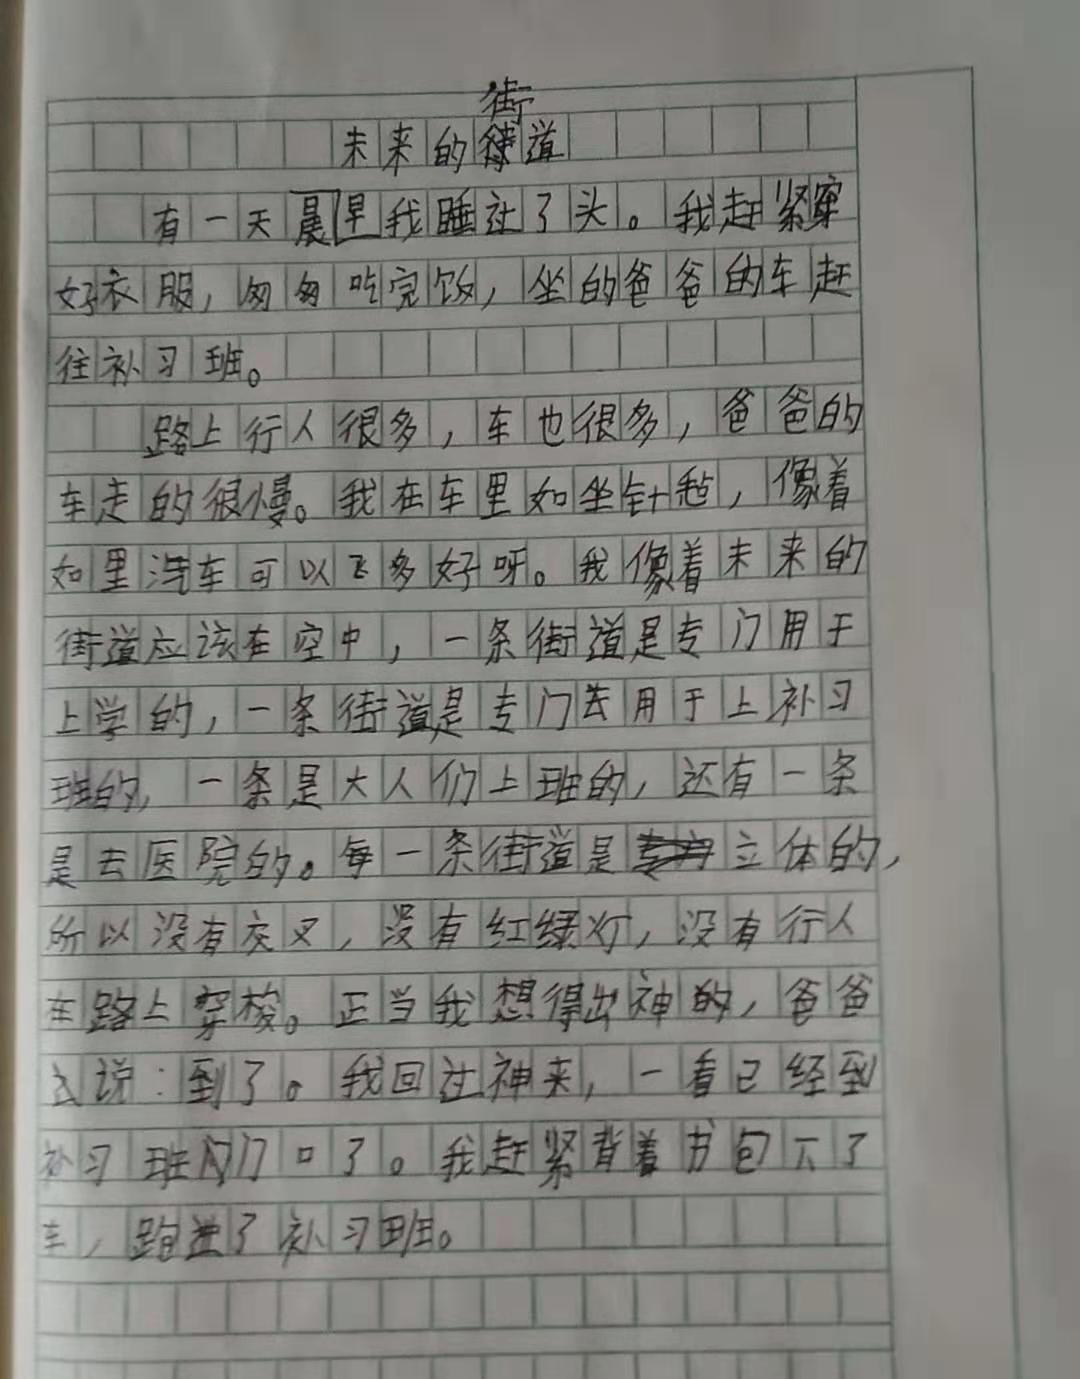 街
未来的道
有一天晨早我睡过了头。我赶紧穿
好衣服，匆匆吃完饭，坐的爸爸的车赶
往补习班。
路上行人很多，车也很多，爸爸的
车走的很慢。我在车里如坐针毡，像着
如里汽车可以飞多好呀。我像着未来的
街道应该在空中，一条街道是专门用于
上学的，一条街道是专门去用于上补习
班的，一条是大人们上班的，还有一条
是去医院的。每一条街道是立体的，
所以没有交叉，没有红绿灯，没有行人
在路上穿梭。正当我想得出神的，爸爸
说：到了。我回过神来，一看已经到
补习班门口了。我赶紧背着书包下了
车，跑进了补习班。